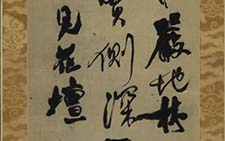 嚴地林
側深
見花壇